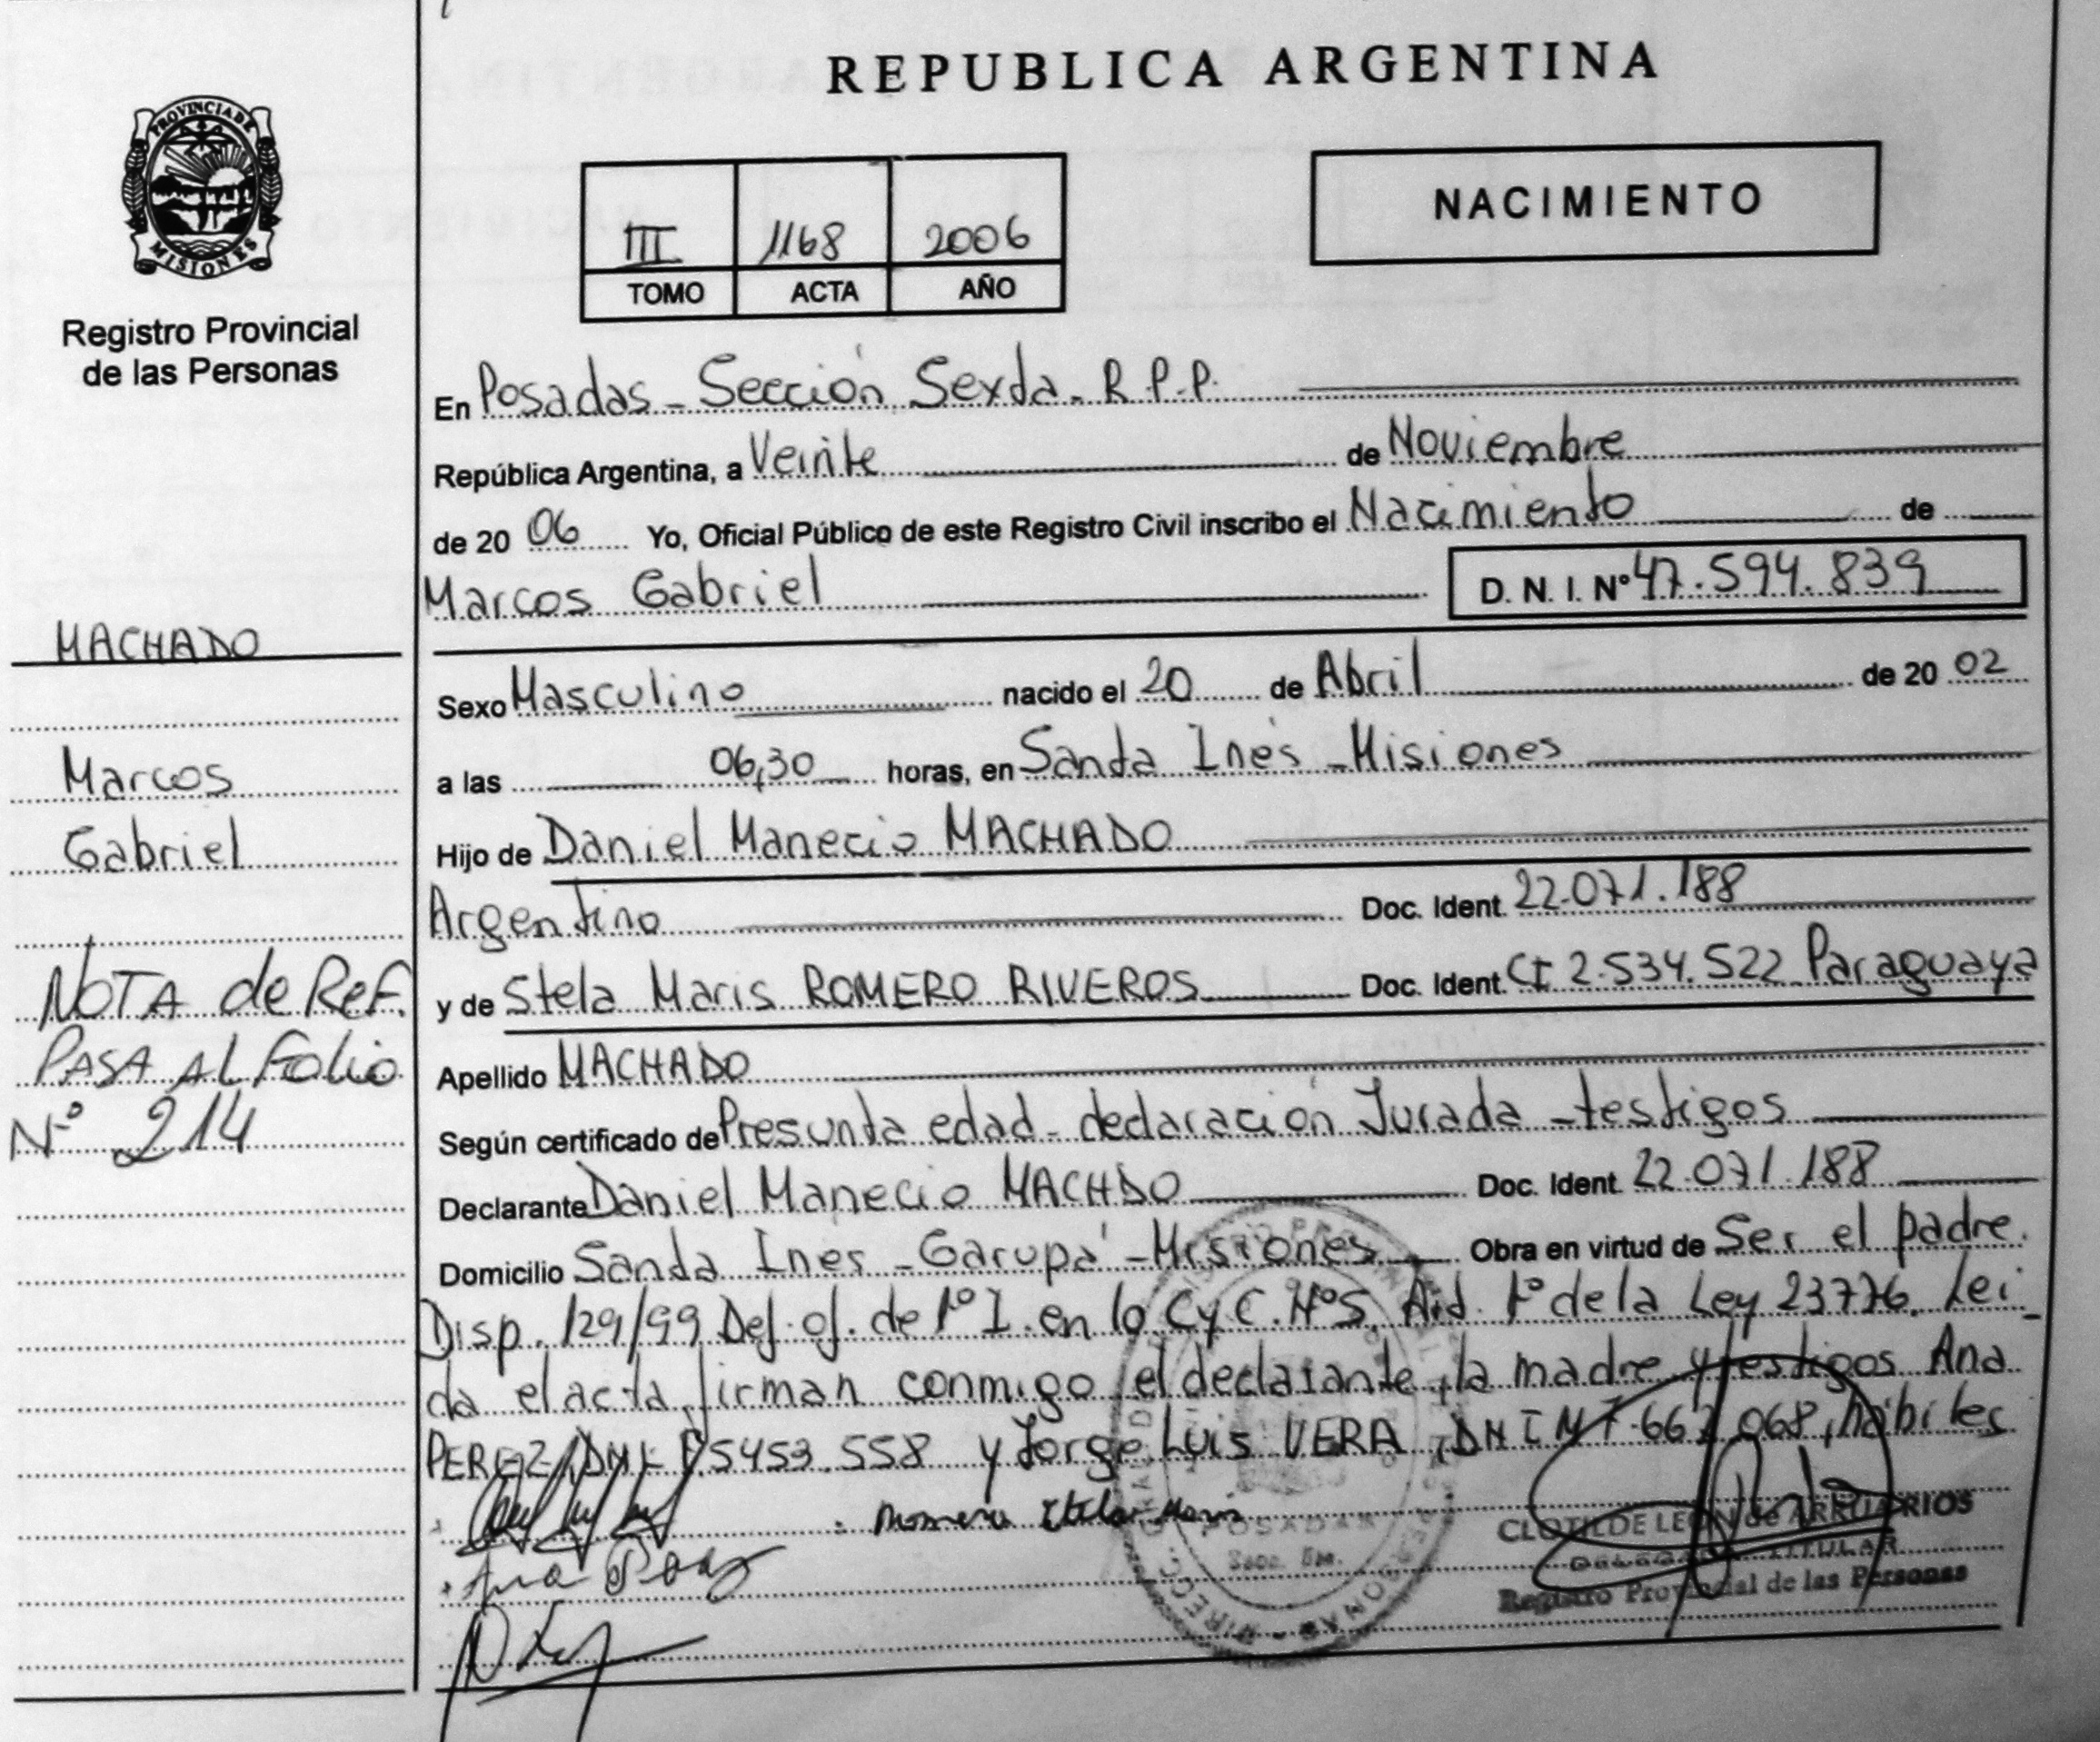 REPUBLICA ARGENTINA
PROVINCIA DE
MISIONES
Registro Provincial
de las Personas
NACIMIENTO
III 1168 2006
TOMO ACTA AÑO
En Posadas - Sección Sexta - R.P.P.
República Argentina, a Veinte de Noviembre
de 20 06 Yo, Oficial Público de este Registro Civil inscribo el Nacimiento de
Marcos Gabriel D. N. I. Nº 47.594.839
MACHADO
Marcos
Gabriel
NOTA de Ref.
PASA AL Folio
Nº 214
Sexo Masculino nacido el 20 de Abril de 20 02
a las 06,30 horas, en Santa Inés - Misiones
Hijo de Daniel Manecio MACHADO
Argentino Doc. Ident. 22.071.188
y de Stela Maris ROMERO RIVEROS Doc. Ident. CI 2.534.522 Paraguaya
Apellido MACHADO
Según certificado de Presunta edad - declaración Jurada - testigos
Declarante Daniel Manecio MACHDO Doc. Ident. 22.071.188
Domicilio Santa Ines - Garupá - Misiones Obra en virtud de Ser el padre.
Disp. 129/99 Def. of. de 1º I. en lo C y C. Nº5. Art. 1º de la Ley 23776. Lei_
da el acta, firman conmigo, el declarante, la madre y testigos Ana
PEREZ, DNI 5453.558 y Jorge Luis VERA, DNI 068, hábiles
Romero Stela Maris
POSADAS
Secc. 6ta.
CLOTILDE LEON de ARRUARRIOS
DELEGADA TITULAR
Registro Provincial de las Personas